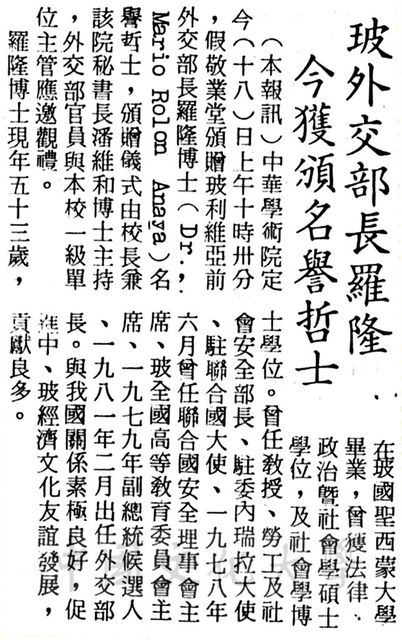 玻外交部長羅隆
今獲頒名譽哲士
（本報訊）中華學術院定
今（十八）日上午十時卅分
，假敬業堂頒贈玻利維亞前
外交部長羅隆博士（Dr.,
Mario Rolon Anaya）名
譽哲士，頒贈儀式由校長兼
該院秘書長潘維和博士主持
，外交部官員與本校一級單
位主管應邀觀禮。
羅隆博士現年五十三歲，
在玻國聖西蒙大學
畢業，曾獲法律、
政治暨社會學碩士
學位，及社會學博
士學位。曾任教授、勞工及社
會安全部長、駐委內瑞拉大使
、駐聯合國大使、一九七八年
六月曾任聯合國安全理事會主
席、玻全國高等教育委員會主
席、一九七九年副總統候選人
、一九八一年二月出任外交部
長。與我國關係素極良好，促
進中、玻經濟文化友誼發展，
貢獻良多。
中國文化大學